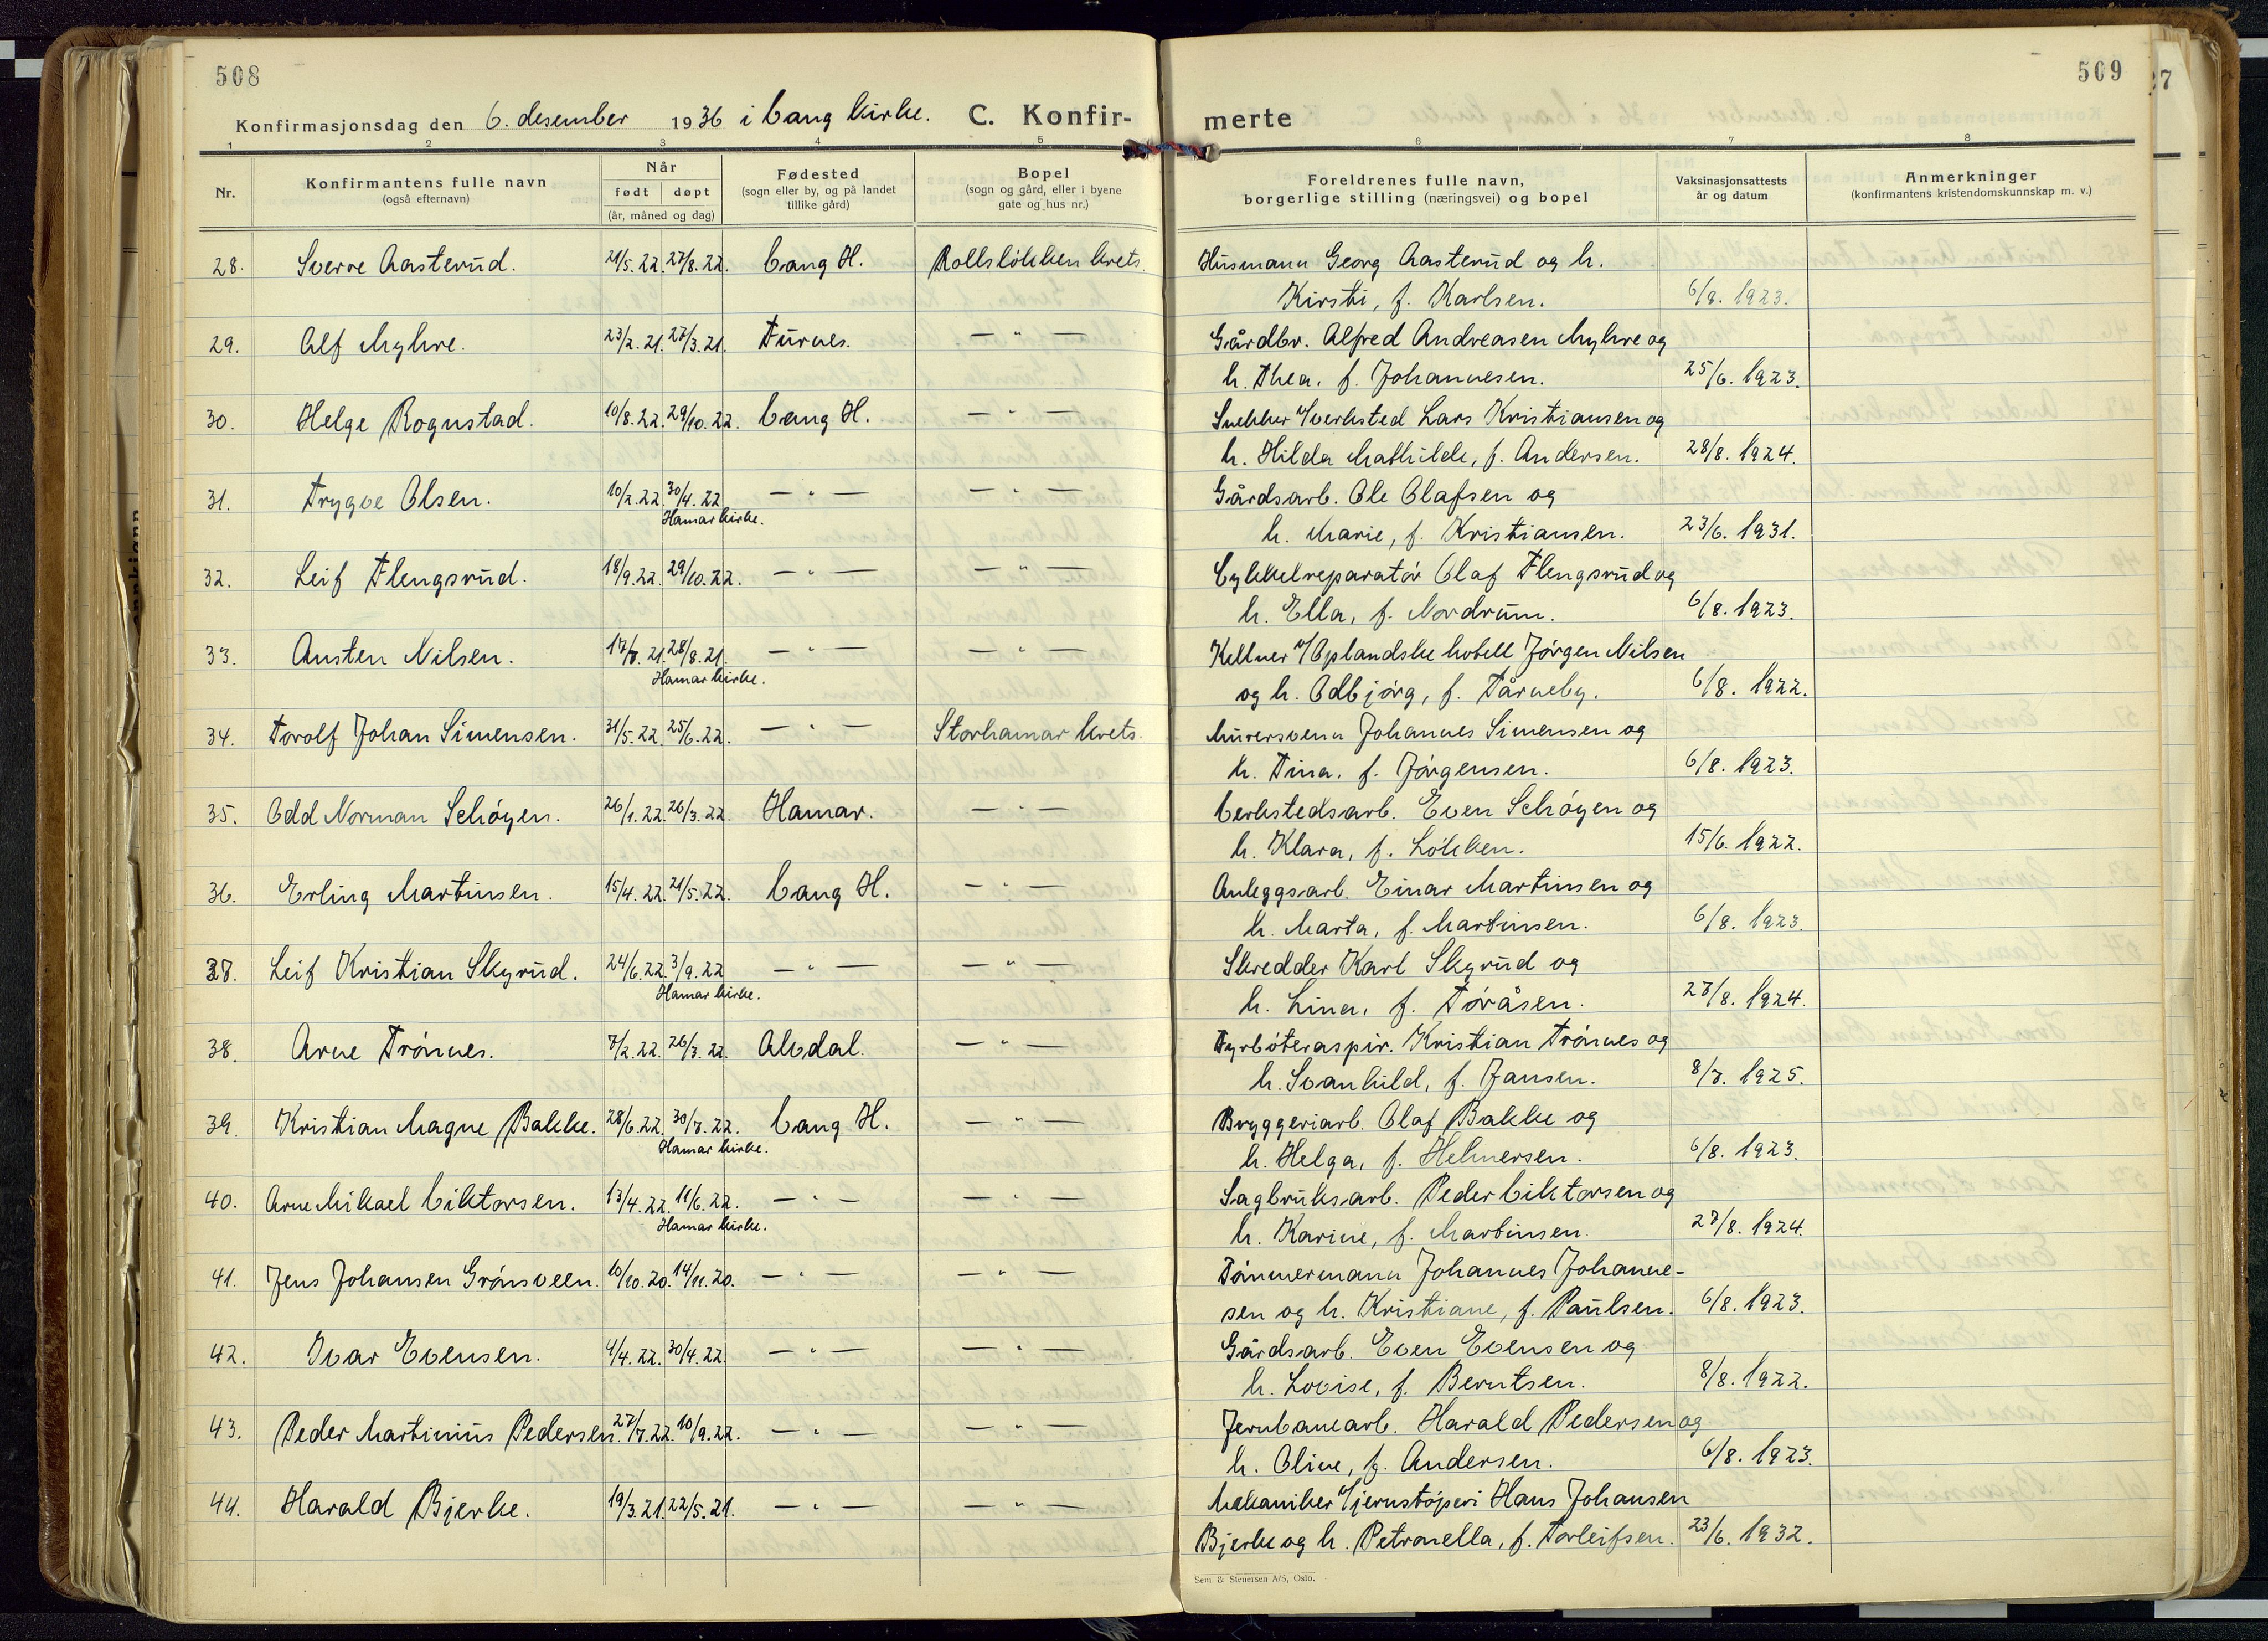 508
Konfirmasjonsdag den 6. desember 1936 i Vang kirke. C. Konfir-
1 2 3 4 5
Nr. Konfirmantens fulle navn (også efternavn) Når født døpt (år, måned og dag) Fødested (sogn eller by, og på landet tillike gård) Bopel (sogn og gård, eller i byene gate og hus nr.)
28. Sverre Aasterud. 21/5. 22. 27/8. 22. Vang H. Rollsløkken krets.
29. Alf Myhre. 23/2. 21. 27/3. 21. Furnes. — " —
30. Helge Rognstad. 10/8. 22. 29/10. 22. Vang H. — " —
31. Trygve Olsen. 10/2. 22. 30/4. 22 — " — — " —
Hamar kirke.
32. Leif Flengsrud. 18/9. 22. 29/10. 22. — " — — " —
33. Austen Nilsen. 17/7. 21. 28/8. 21. — " — — " —
Hamar kirke.
34. Torolf Johan Simensen. 31/5. 22. 25/6. 22. — " — Storhamar krets.
35. Odd Norman Schøyen. 26/1. 22. 26/3. 22. Hamar. — " —
36. Erling Martinsen. 15/4. 22. 21/5. 22. Vang H. — " —
37. Leif Kristian Skyrud. 24/6. 22. 3/9. 22 — " — — " —
Hamar kirke.
38. Arne Trønnes. 7/2. 22. 26/3. 22. Alvdal. — " —
39. Kristian Magne Bakke. 28/6. 22. 30/7. 22. Vang H. — " —
Hamar kirke.
40. Arne Mikael Viktorsen. 13/4. 22. 11/6. 22. — " — — " —
Hamar kirke.
41. Jens Johansen Grønsveen. 10/10. 20. 14/11. 20. — " — — " —
42. Ivar Evensen. 4/4. 22. 30/4. 22. — " — — " —
43. Peder Martinius Pedersen. 27/7. 22. 10/9. 22. — " — — " —
44. Harald Bjerke. 19/3. 21. 22/5. 21. — " — — " —
509
merte
6 7 8
Foreldrenes fulle navn, borgerlige stilling (næringsvei) og bopel Vaksinasjonsattests år og datum Anmerkninger (konfirmantens kristendomskunnskap m. v.)
Husmann Georg Aasterud og h.
Kirsti, f. Karlsen. 6/8. 1923.
Gårdbr. Alfred Andreasen Myhre og
h. Thea, f. Johannesen. 25/6. 1923.
Snekker v/verksted Lars Kristiansen og
h. Hilda Mathilde, f. Andersen. 28/8. 1924.
Gårdsarb. Ole Olafsen og
h. Marie, f. Kristiansen. 23/6. 1931.
Cykkelreparatør Olaf Flengsrud og
h. Ella, f. Nordrum. 6/8. 1923.
Kellner v/Oplandske hotell Jørgen Nilsen
og h. Odbjørg, f. Tårneby. 6/8. 1922.
Murersvenn Johannes Simensen og
h. Tina, f. Jørgensen. 6/8. 1923.
Verkstedsarb. Even Schøyen og
h. Klara, f. Løkken. 15/6. 1922.
Anleggsarb. Einar Martinsen og
h. Marta, f. Martinsen. 6/8. 1923.
Skredder Karl Skyrud og
h. Lina, f. Toråsen. 27/8. 1924.
Fyrbøteraspir. Kristian Trønnes og
h. Svanhild, f. Jansen. 8/7. 1925.
Bryggeriarb. Olaf Bakke og
h. Helga, f. Helmersen. 6/8. 1923.
Sagbruksarb. Peder Viktorsen og
h. Karine, f. Martinsen. 27/8. 1924.
Tømmermann Johannes Johanne-
sen og h. Kristiane, f. Paulsen. 6/8. 1923.
Gårdsarb. Even Evensen og
h. Lovise, f. Berntsen. 8/8. 1922.
Jernbanearb. Harald Pedersen og
h. Oline, f. Andersen. 6/8. 1923.
Mekaniker v/jernstøperi Hans Johansen
Bjerke og h. Petronella, f. Torleifsen. 23/6. 1932.
Sem & Stenersen A/S, Oslo.